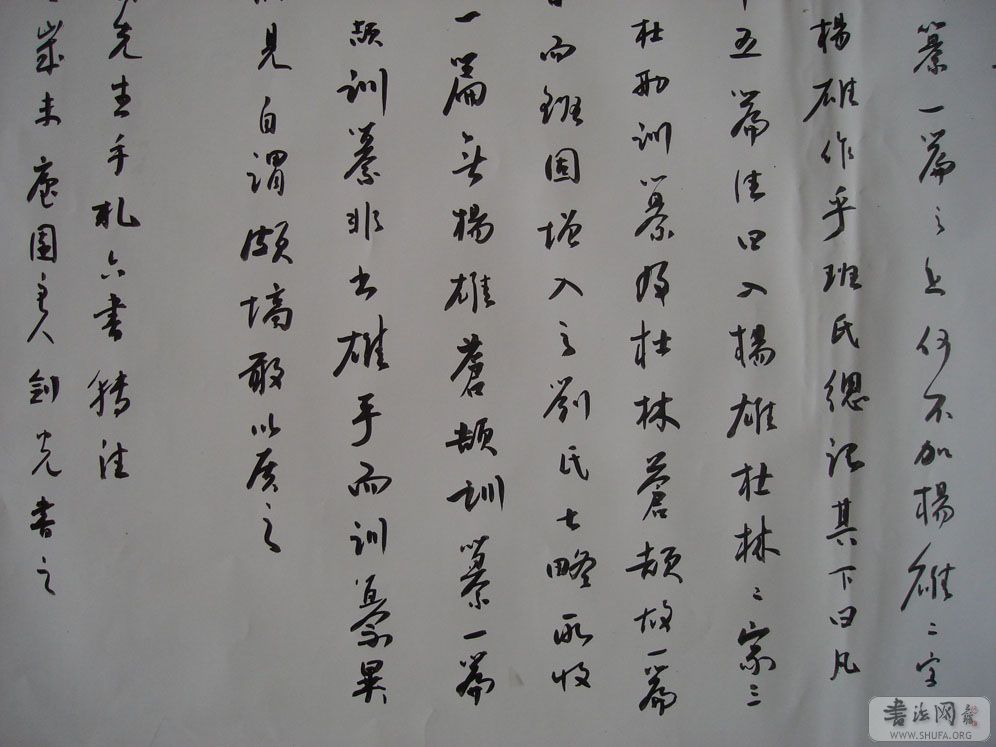 纂一篇之上何不加楊雄二字
楊雄作乎班氏總記其下曰凡
十五篇注曰入楊雄杜林二家三
杜林訓纂及杜林蒼頡故一篇
而班固增入之劉氏七略所收
一篇無楊雄蒼頡訓纂一篇
頡訓纂非出雄手而訓纂果
見自謂頗塙敢以质之
先生手札六書轉注
歲未 園主人劍光書之
書法网
WWW.SHUFA.ORG